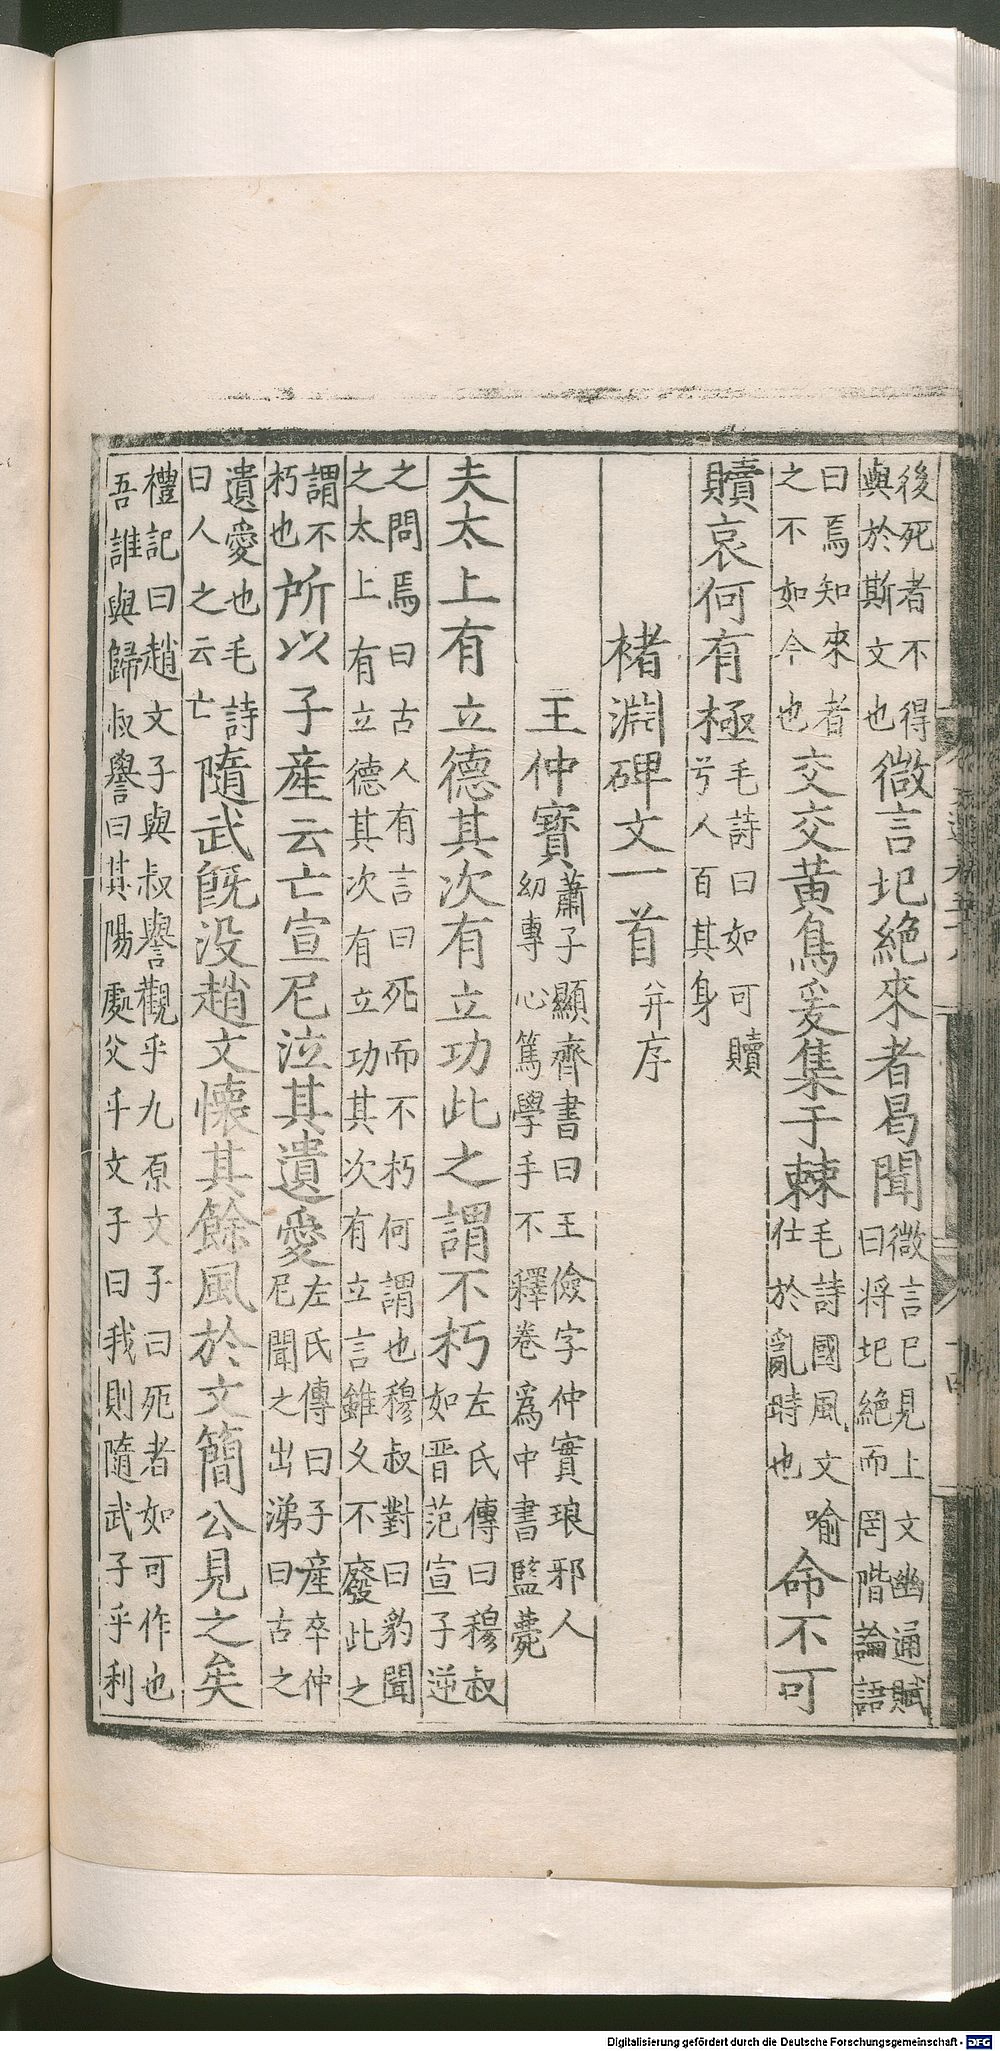 後死者不得
與於斯文也微言圯絕來者曷聞微言已見上文幽通賦
曰將圯絕而罔階論語
曰焉知來者
之不如今也交交黃鳥爰集于棘毛詩國風文喻
仕於亂時也命不可
贖哀何有極毛詩曰如可贖
兮人百其身
褚淵碑文一首并序
王仲寶蕭子顯齊書曰王儉字仲寶琅邪人
幼專心篤學手不釋卷爲中書監薨
夫太上有立德其次有立功此之謂不朽左氏傳曰穆叔
如晉范宣子逆
之問焉曰古人有言曰死而不朽何謂也穆叔對曰豹聞
之太上有立德其次有立功其次有立言雖久不廢此之
謂不
朽也所以子產云亡宣尼泣其遺愛左氏傳曰子產卒仲
尼聞之出涕曰古之
遺愛也毛詩
曰人之云亡隨武既没趙文懷其餘風於文簡公見之矣
禮記曰趙文子與叔譽觀乎九原文子曰死者如可作也
吾誰與歸叔譽曰其陽處父乎文子曰我則隨武子乎利
Digitalisierung gefördert durch die Deutsche Forschungsgemeinschaft - DFG